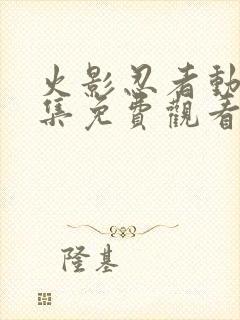 火影忍者動
集免費觀看
隆基